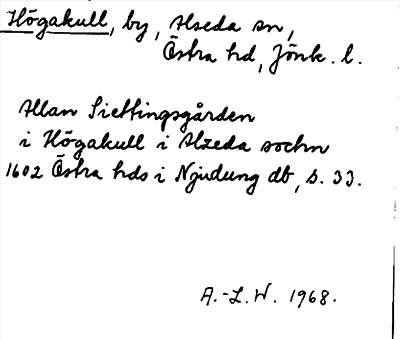 Högakull, by, Alseda sn,
Östra hd, Jönk. l.
Allan Siettingsgården
i Högakull i Alzeda sochn
1602 Östra hds i Njudung db, s. 33.
A.-L.W. 1968.